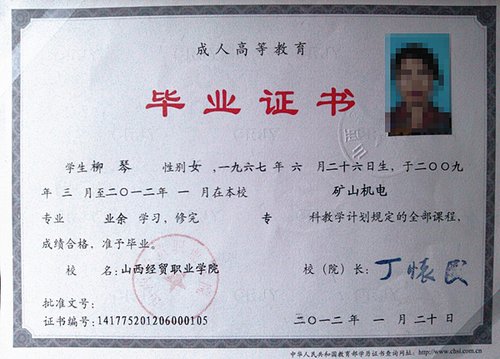 成人高等教育
毕业证书
学生 柳 琴 性别 女 ,一九六七 年 六 月二十六日生，于二〇〇九
年 三 月至二〇一二年 一 月在本校 矿山机电
专业 业余 学习，修完 专 科教学计划规定的全部课程，
成绩合格，准予毕业。
校 名:山西经贸职业学院 校（院）长: 丁怀民
批准文号:
证书编号:141775201206000105 二〇一二 年 一 月 二十 日
中华人民共和国教育部学历证书查询网址: http://www.chsi.com.cn